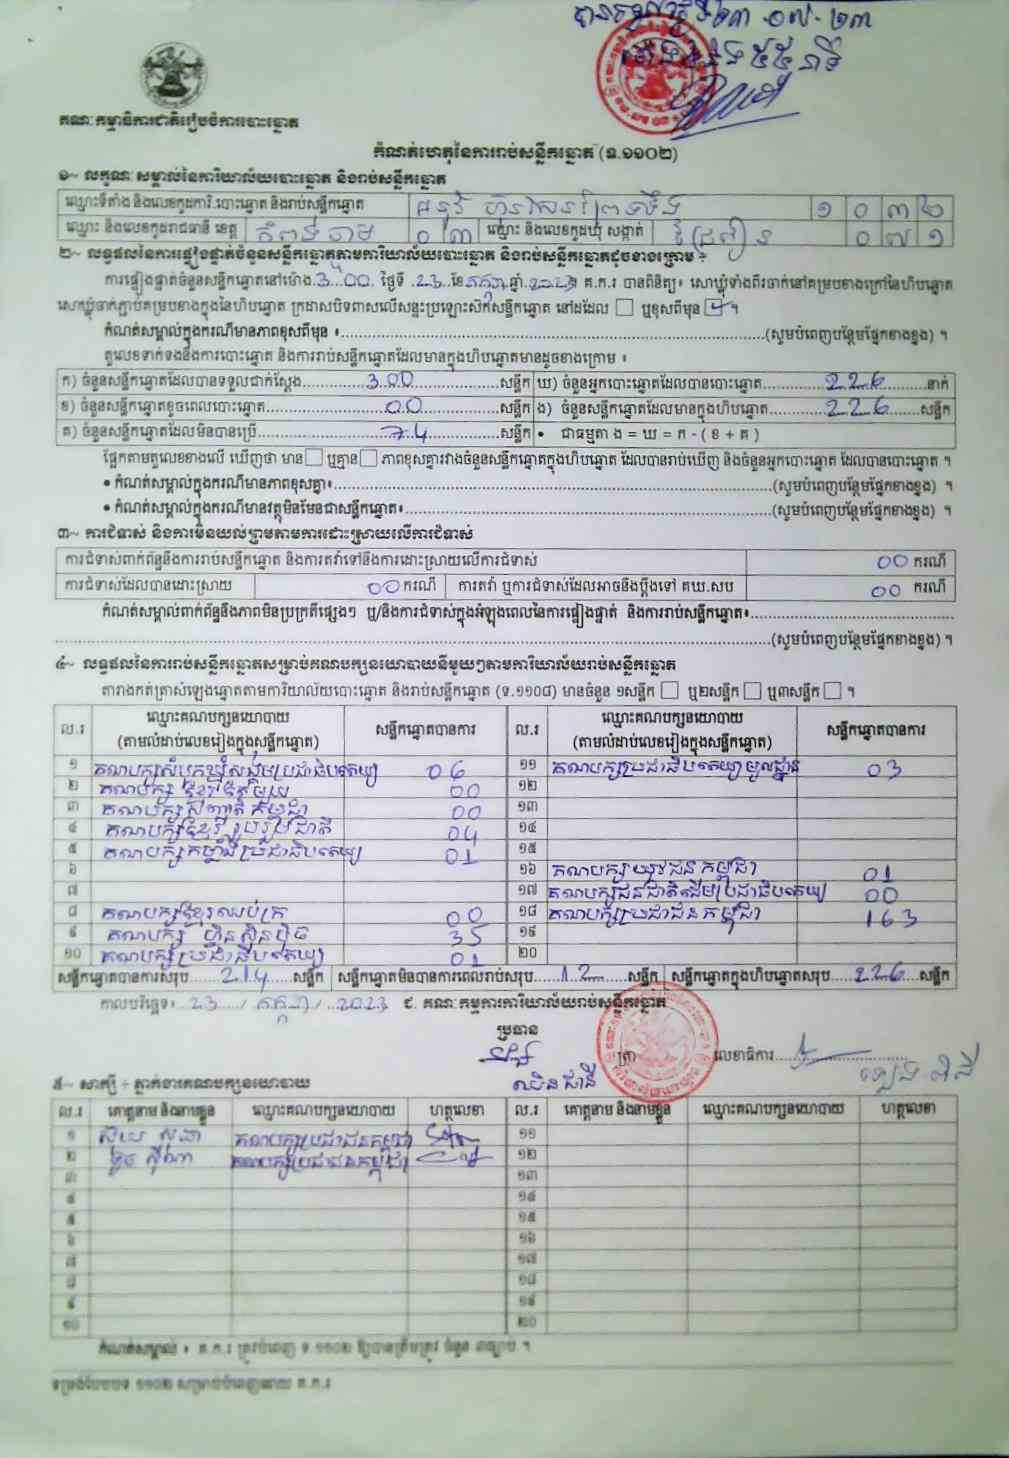 បានទទួលថ្ងៃទី២៣-០៧-២៣
ម៉ោង ៥ និង ៥៥ នាទី
គណៈកម្មាធិការជាតិរៀបចំការបោះឆ្នោត
កំណត់ហេតុនៃការរាប់សន្លឹកឆ្នោត (ទ.១១០២)
១~ លក្ខណៈសម្គាល់នៃការិយាល័យបោះឆ្នោត និងរាប់សន្លឹកឆ្នោត
ឈ្មោះទីតាំង និងលេខកូដការិ.បោះឆ្នោត និងរាប់សន្លឹកឆ្នោត ១ ០ ៣ ២
ឈ្មោះ និងលេខកូដរាជធានី ខេត្ត កំពង់ចាម ០ ៣ ឈ្មោះ និងលេខកូដឃុំ សង្កាត់ ០ ៧ ១
២~ លទ្ធផលនៃការផ្ទៀងផ្ទាត់ចំនួនសន្លឹកឆ្នោតតាមការិយាល័យបោះឆ្នោត និងរាប់សន្លឹកឆ្នោតដូចខាងក្រោម ÷
ការផ្ទៀងផ្ទាត់ចំនួនសន្លឹកឆ្នោតនៅម៉ោង.3.00. ថ្ងៃទី .23..ខែកក្កដា ឆ្នាំ.2023 គ.ក.រ បានពិនិត្យ៖ សោឃ្លុំទាំងពីរចាក់នៅគម្របខាងក្រៅនៃហិបឆ្នោត
សោឃ្លុំចាក់ភ្ជាប់គម្របខាងក្នុងនៃហិបឆ្នោត ក្រដាសបិទពាសលើសន្ទះប្រឡោះស៊កសន្លឹកឆ្នោត នៅដដែល □ ឬខុសពីមុន ☑ ។
កំណត់សម្គាល់ក្នុងករណីមានភាពខុសពីមុន ៖..........(សូមបំពេញបន្ថែមផ្នែកខាងខ្នង) ។
តួលេខទាក់ទងនឹងការបោះឆ្នោត និងការរាប់សន្លឹកឆ្នោតដែលមានក្នុងហិបឆ្នោតមានដូចខាងក្រោម ៖
ក) ចំនួនសន្លឹកឆ្នោតដែលបានទទួលជាក់ស្តែង......300......សន្លឹក ឃ) ចំនួនអ្នកបោះឆ្នោតដែលបានបោះឆ្នោត......226......នាក់
ខ) ចំនួនសន្លឹកឆ្នោតខូចពេលបោះឆ្នោត......00......សន្លឹក ង) ចំនួនសន្លឹកឆ្នោតដែលមានក្នុងហិបឆ្នោត......226......សន្លឹក
គ) ចំនួនសន្លឹកឆ្នោតដែលមិនបានប្រើ......74......សន្លឹក • ជាធម្មតា ង = ឃ = ក - ( ខ + គ )
ផ្អែកតាមតួលេខខាងលើ ឃើញថា មាន□ ឬគ្មាន□ ភាពខុសគ្នារវាងចំនួនសន្លឹកឆ្នោតក្នុងហិបឆ្នោត ដែលបានរាប់ឃើញ និងចំនួនអ្នកបោះឆ្នោត ដែលបានបោះឆ្នោត ។
• កំណត់សម្គាល់ក្នុងករណីមានភាពខុសគ្នា៖..........(សូមបំពេញបន្ថែមផ្នែកខាងខ្នង) ។
• កំណត់សម្គាល់ក្នុងករណីមានវត្ថុមិនមែនជាសន្លឹកឆ្នោត៖..........(សូមបំពេញបន្ថែមផ្នែកខាងខ្នង) ។
៣~ ការជំទាស់ និងការមិនយល់ព្រមតាមការដោះស្រាយលើការជំទាស់
ការជំទាស់ពាក់ព័ន្ធនឹងការរាប់សន្លឹកឆ្នោត និងការតវ៉ាទៅនឹងការដោះស្រាយលើការជំទាស់ 00 ករណី
ការជំទាស់ដែលបានដោះស្រាយ 00 ករណី ការតវ៉ា ឬការជំទាស់ដែលអាចនឹងប្តឹងទៅ គឃ.សប 00 ករណី
កំណត់សម្គាល់ពាក់ព័ន្ធនឹងភាពមិនប្រក្រតីផ្សេងៗ ឬ/និងការជំទាស់ក្នុងអំឡុងពេលនៃការផ្ទៀងផ្ទាត់ និងការរាប់សន្លឹកឆ្នោត៖..........
..........(សូមបំពេញបន្ថែមផ្នែកខាងខ្នង) ។
៤~ លទ្ធផលនៃការរាប់សន្លឹកឆ្នោតសម្រាប់គណបក្សនយោបាយនីមួយៗតាមការិយាល័យរាប់សន្លឹកឆ្នោត
តារាងកត់ត្រាសំឡេងឆ្នោតតាមការិយាល័យបោះឆ្នោត និងរាប់សន្លឹកឆ្នោត (ទ.១១០៨) មានចំនួន ១សន្លឹក □ ឬ២សន្លឹក □ ឬ៣សន្លឹក □ ។
ល.រ ឈ្មោះគណបក្សនយោបាយ (តាមលំដាប់លេខរៀងក្នុងសន្លឹកឆ្នោត) សន្លឹកឆ្នោតបានការ ល.រ ឈ្មោះគណបក្សនយោបាយ (តាមលំដាប់លេខរៀងក្នុងសន្លឹកឆ្នោត) សន្លឹកឆ្នោតបានការ
១ គណបក្សសំបុកឃ្មុំសង្គមប្រជាធិបតេយ្យ 06 ១១ គណបក្សប្រជាធិបតេយ្យមូលដ្ឋាន 03
២ គណបក្សខ្មែរតែមួយ 00 ១២
៣ គណបក្សសញ្ជាតិកម្ពុជា 00 ១៣
៤ គណបក្សខ្មែររួបរួមជាតិ 04 ១៤
៥ គណបក្សកម្លាំងប្រជាធិបតេយ្យ 01 ១៥
៦ ១៦ គណបក្សយុវជនកម្ពុជា 01
៧ ១៧ គណបក្សជនជាតិដើមប្រជាធិបតេយ្យ 00
៨ គណបក្សខ្មែរឈប់ក្រ 00 ១៨ គណបក្សប្រជាជនកម្ពុជា 163
៩ គណបក្ស ហ៊្វុនស៊ិនប៉ិច 35 ១៩
១០ គណបក្សប្រជាធិបតេយ្យ 01 ២០
សន្លឹកឆ្នោតបានការសរុប.....214.....សន្លឹក សន្លឹកឆ្នោតមិនបានការពេលរាប់សរុប.....12.....សន្លឹក សន្លឹកឆ្នោតក្នុងហិបឆ្នោតសរុប.....226.....សន្លឹក
កាលបរិច្ឆេទ៖..23../ កក្កដា /..2023 ៩. គណៈកម្មការការិយាល័យរាប់សន្លឹកឆ្នោត
ប្រធាន
ត្រា លេខាធិការ..........
ឈិន ជាតិ
៥~ សាក្សី ÷ ភ្នាក់ងារគណបក្សនយោបាយ
ល.រ គោត្តនាម និងនាមខ្លួន ឈ្មោះគណបក្សនយោបាយ ហត្ថលេខា ល.រ គោត្តនាម និងនាមខ្លួន ឈ្មោះគណបក្សនយោបាយ ហត្ថលេខា
១ គណបក្សប្រជាជនកម្ពុជា ១១
២ គណបក្សប្រជាជនកម្ពុជា ១២
៣ ១៣
៤ ១៤
៥ ១៥
៦ ១៦
៧ ១៧
៨ ១៨
៩ ១៩
១០ ២០
កំណត់សម្គាល់ ៖ គ.ក.រ ត្រូវបំពេញ ទ.១១០២ ឱ្យបានត្រឹមត្រូវ ចំនួន ៣ច្បាប់ ។
ទម្រង់បែបបទ ១១០២ សម្រាប់បំពេញដោយ គ.ក.រ